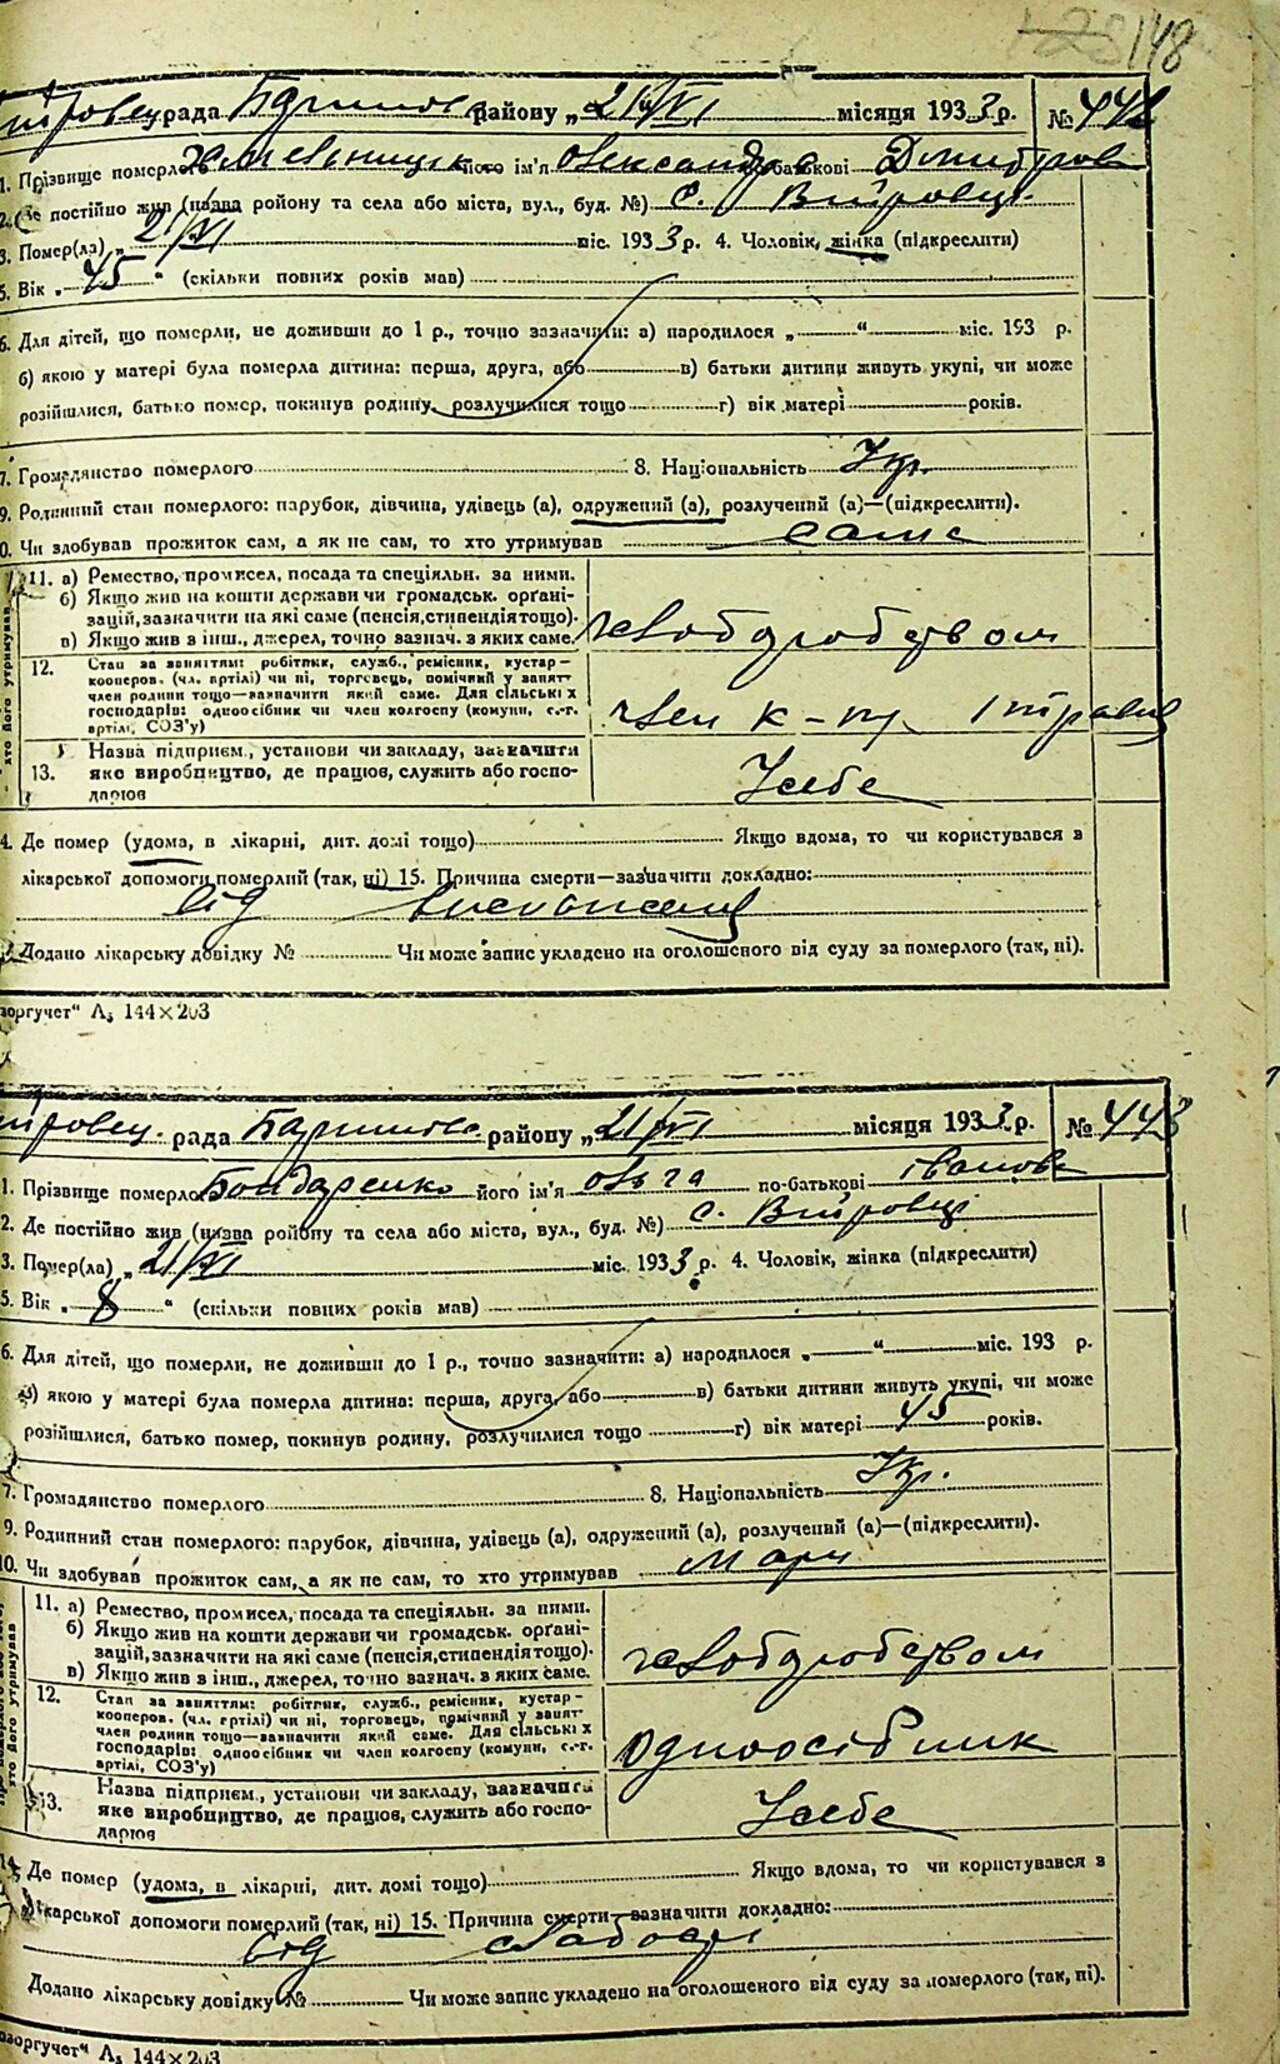 148
рада Баришівс району „21/VI місяця 1933 р. № 442
1. Прізвище померлого Хмельницьк його ім'я Олександра по батькові Дмитров
2. Де постійно жив (назва ройону та села або міста, вул., буд. №) с. Війтовці.
3. Помер(ла) „21/VI міс. 1933 р. 4. Чоловік, жінка (підкреслити)
5. Вік „45" (скільки повних років мав)
6. Для дітей, що померли, не доживши до 1 р., точно зазначити: а) народилося „ " міс. 193 р.
б) якою у матері була померла дитина: перша, друга, або в) батьки дитини живуть укупі, чи може
розійшлися, батько помер, покинув родину, розлучилися тощо г) вік матері років.
7. Громадянство померлого 8. Національність Укр.
9. Родинний стан померлого: парубок, дівчина, удівець (а), одружений (а), розлучений (а)—(підкреслити).
0. Чи здобував прожиток сам, а як не сам, то хто утримував сама
хто його утримував
11. а) Ремество, промисел, посада та спеціяльн. за ними.
б) Якщо жив на кошти держави чи громадськ. орґані-
зацій, зазначити на які саме (пенсія, стипендія тощо).
в) Якщо жив з інш., джерел, точно зазнач. з яких саме.
хлібороբством
12. Стан за заняттям: робітник, служб., ремісник, кустар—
кооперов. (чл. артілі) чи ні, торговець, помічний у занят—
член родини тощо—зазначити який саме. Для сільських
господарів: одноосібник чи член колгоспу (комуни, с.-г.
артілі, СОЗ'у)
член к-пу
13. Назва підприєм., установи чи закладу, зазначити
яке виробництво, де працюв, служить або госпо-
дарюв
У себе
4. Де помер (удома, в лікарні, дит. домі тощо) Якщо вдома, то чи користувався з
лікарської допомоги померлий (так, ні) 15. Причина смерти—зазначити докладно:
від виснаження
Додано лікарську довідку № Чи може запис укладено на оголошеного від суду за померлого (так, ні).
зоргучет" А₅ 144×203
рада Баришівс району „21/VI місяця 1933 р. № 443
1. Прізвище померло Бондаренко його ім'я Ольга по-батькові Іванов
2. Де постійно жив (назва ройону та села або міста, вул., буд. №) с. Війтовці
3. Помер(ла) „21/VI міс. 1933 р. 4. Чоловік, жінка (підкреслити)
5. Вік „8" (скільки повних років мав)
6. Для дітей, що померли, не доживши до 1 р., точно зазначити: а) народилося „ " міс. 193 р.
б) якою у матері була померла дитина: перша, друга, або в) батьки дитини живуть укупі, чи може
розійшлися, батько помер, покинув родину, розлучилися тощо г) вік матері 45 років.
7. Громадянство померлого 8. Національність Укр.
9. Родинний стан померлого: парубок, дівчина, удівець (а), одружений (а), розлучений (а)—(підкреслити).
10. Чи здобував прожиток сам, а як не сам, то хто утримував Мати
хто його утримував
11. а) Ремество, промисел, посада та спеціяльн. за ними.
б) Якщо жив на кошти держави чи громадськ. орґані-
зацій, зазначити на які саме (пенсія, стипендія тощо).
в) Якщо жив з інш., джерел, точно зазнач. з яких саме.
хліборобством
12. Стан за заняттям: робітник, служб., ремісник, кустар—
кооперов. (чл. артілі) чи ні, торговець, помічний у занят—
член родини тощо—зазначити який саме. Для сільських
господарів: одноосібник чи член колгоспу (комуни, с.-г.
артілі, СОЗ'у)
одноосібник
13. Назва підприєм., установи чи закладу, зазначити
яке виробництво, де працюв, служить або госпо-
дарюв
У себе
14. Де помер (удома, в лікарні, дит. домі тощо) Якщо вдома, то чи користувався з
лікарської допомоги померлий (так, ні) 15. Причина смерти—зазначити докладно:
від слабості
Додано лікарську довідку № Чи може запис укладено на оголошеного від суду за померлого (так, ні).
зоргучет" А₅ 144×203